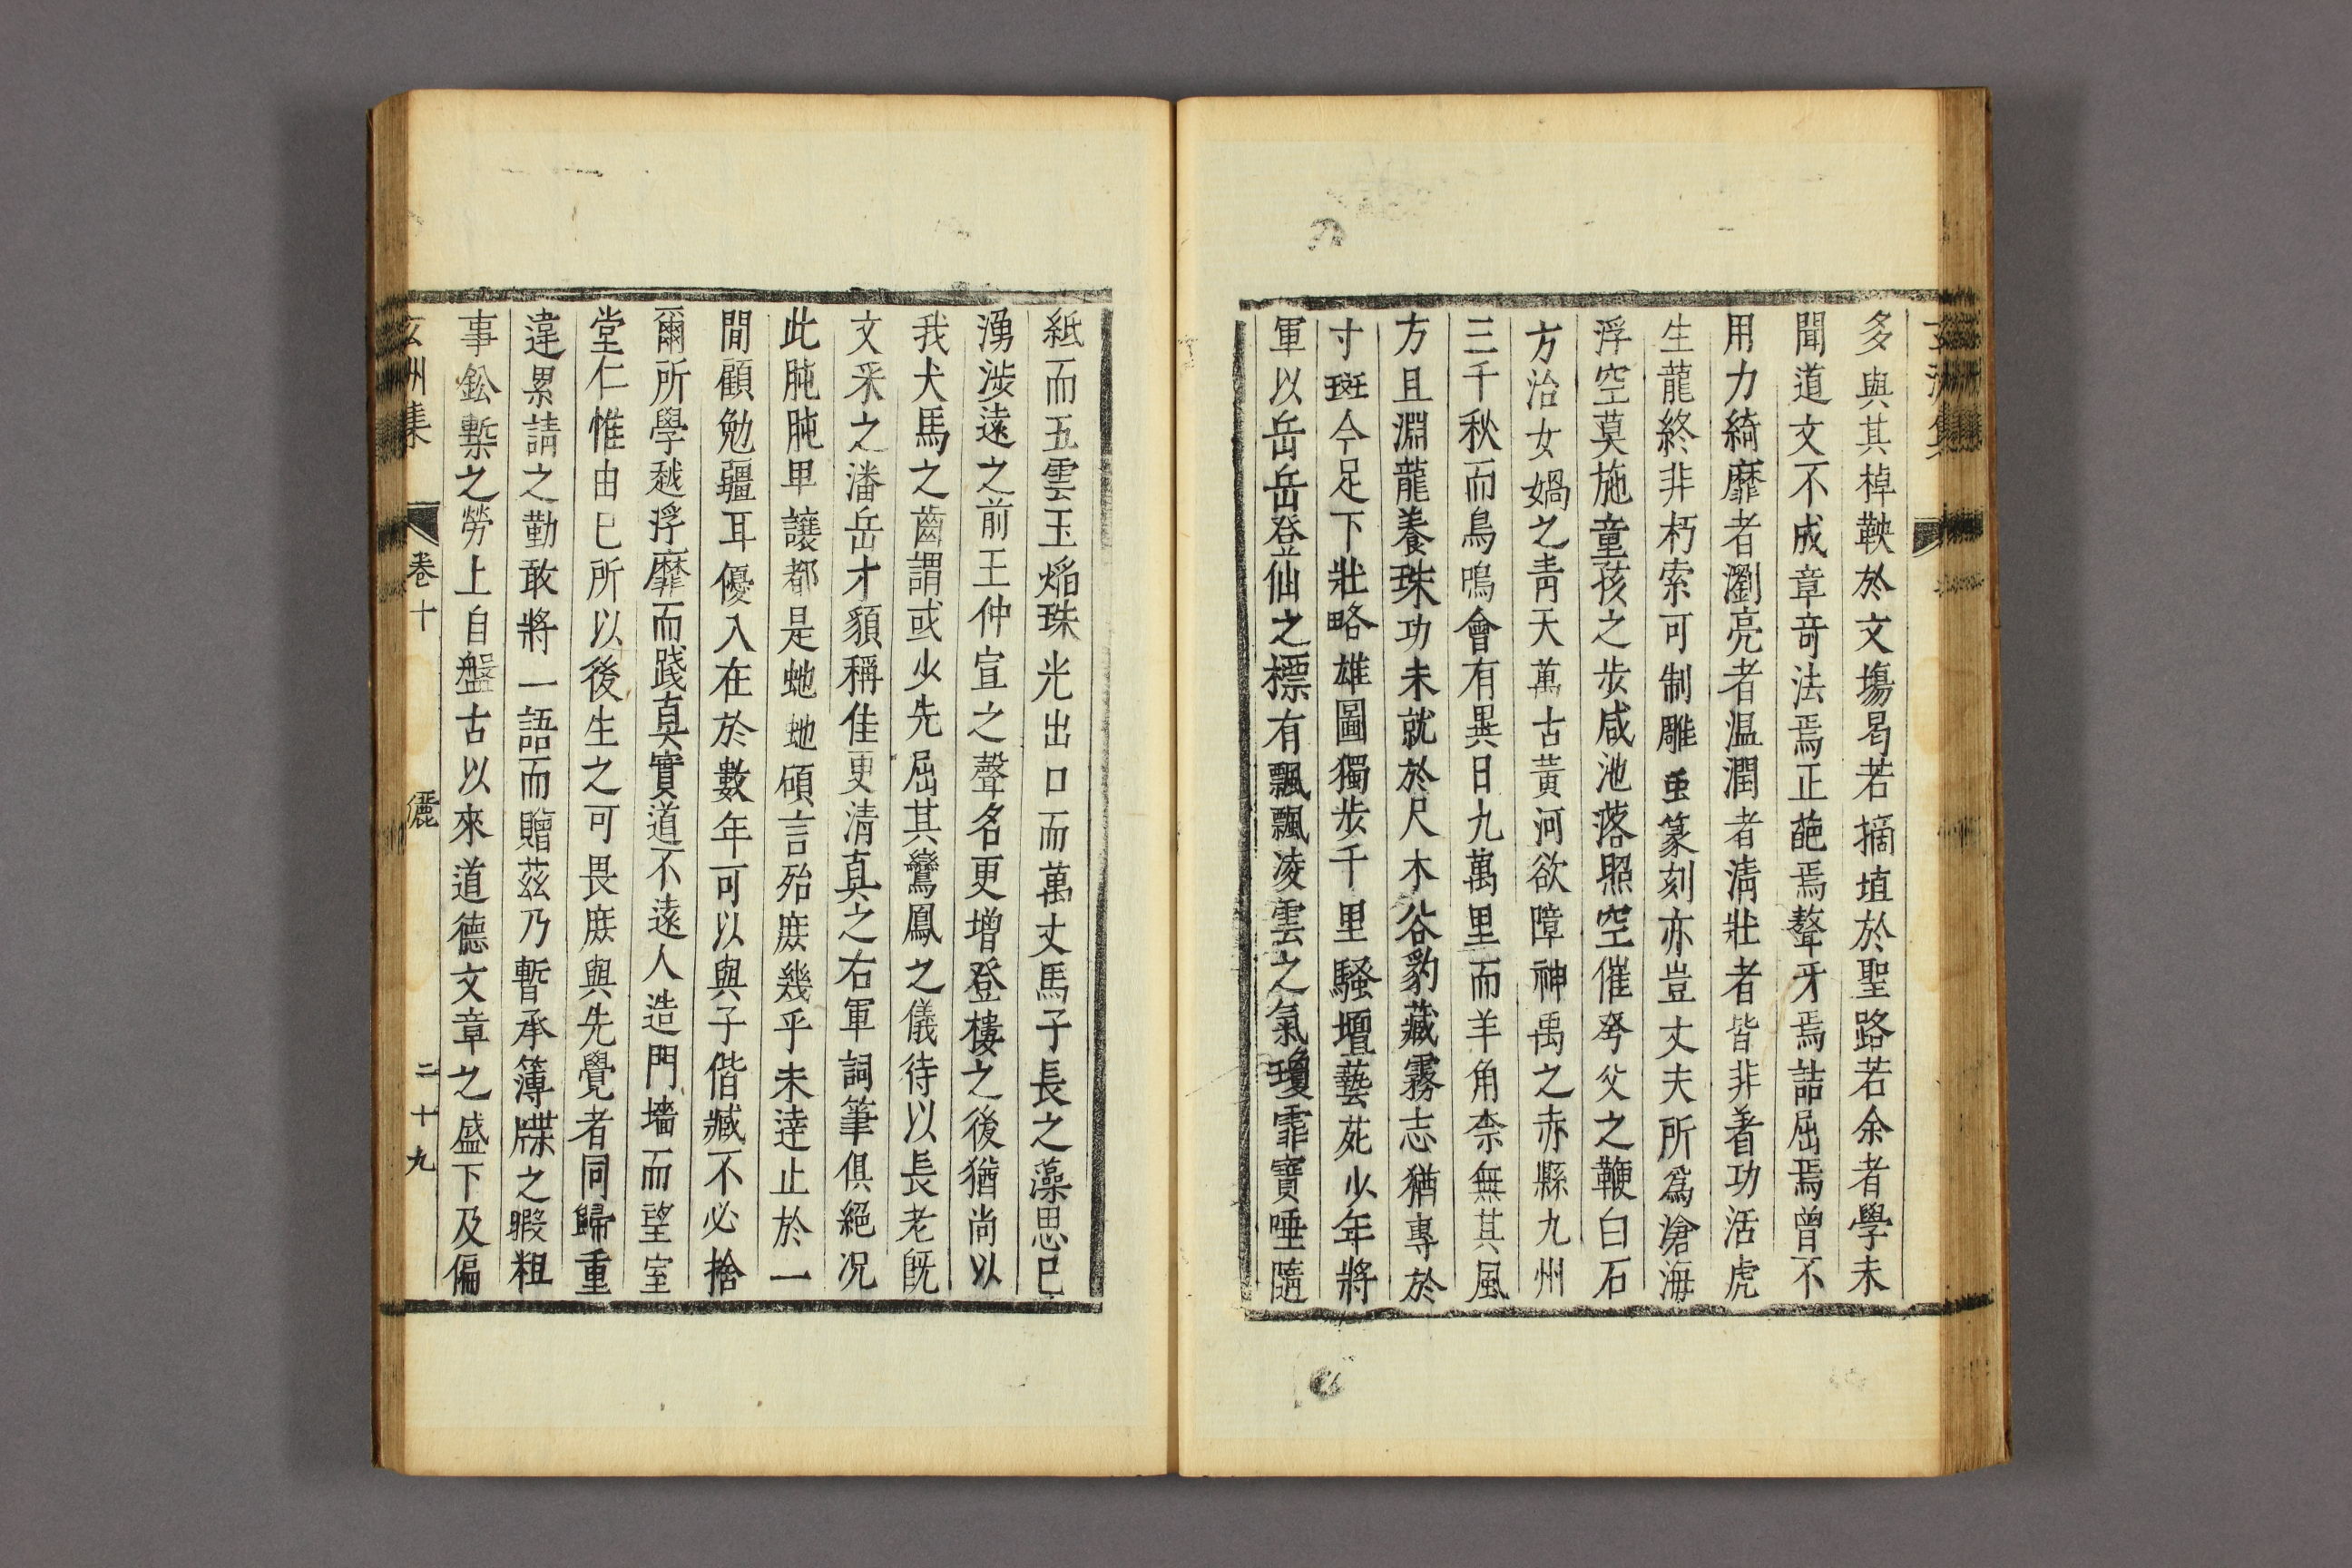 多與其棹鞅於文塲曷若摘埴於聖路若余者學未
聞道文不成章竒法焉正葩焉聱牙焉詰屈焉曾不
用力綺靡者瀏亮者温潤者淸壯者皆非著功活虎
生龍終非朽索可制雕虫篆刻亦豈丈夫所爲滄海
浮空莫施童孩之步咸池落照空催夸父之鞭白石
方治女媧之靑天萬古黃河欲障神禹之赤縣九州
三千秋而鳥鳴會有異日九萬里而羊角柰無其風
方且淵龍養珠功未就於尺木谷豹藏霧志猶專於
寸斑今足下壯略雄圖獨步千里騷壇藝苑少年將
軍以岳岳登仙之標有飄飄凌雲之氣瓊霏寶唾隨
紙而五雲玉焰珠光出口而萬丈馬子長之藻思已
湧渉遠之前王仲宣之聲名更增登樓之後猶尚以
我犬馬之齒謂或少先屈其鸞鳳之儀待以長老旣
文釆之潘岳才貌稱佳更清眞之右軍詞筆俱絕况
此肫肫卑讓都是虵虵碩言殆庶幾乎未逹止於一
間顧勉疆耳優入在於數年可以與子偕臧不必捨
爾所學越浮靡而踐真實道不遠人造門墻而望室
堂仁惟由已所以後生之可畏庶與先覺者同歸重
違累請之勤敢將一語而贈茲乃暫承簿牒之暇粗
事鈆槧之勞上自盤古以來道德文章之盛下及偏
玄洲集 卷十 儷 二十九